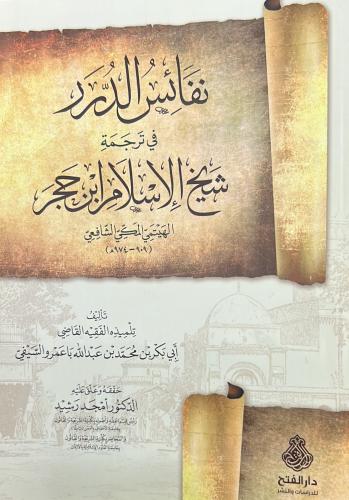 نفائس الدرر
في ترجمة
شيخ الإسلام ابن حجر
الهيتمي المكي الشافعي
(٩٠٩ - ٩٧٤ هـ)
تأليف
تلميذه الفقيه القاضي
أبي بكر بن محمد بن عبد الله باعمرو السيفي
حققه وعلق عليه
الدكتور أمجد رشيد
دار الفتح
للدراسات والنشر